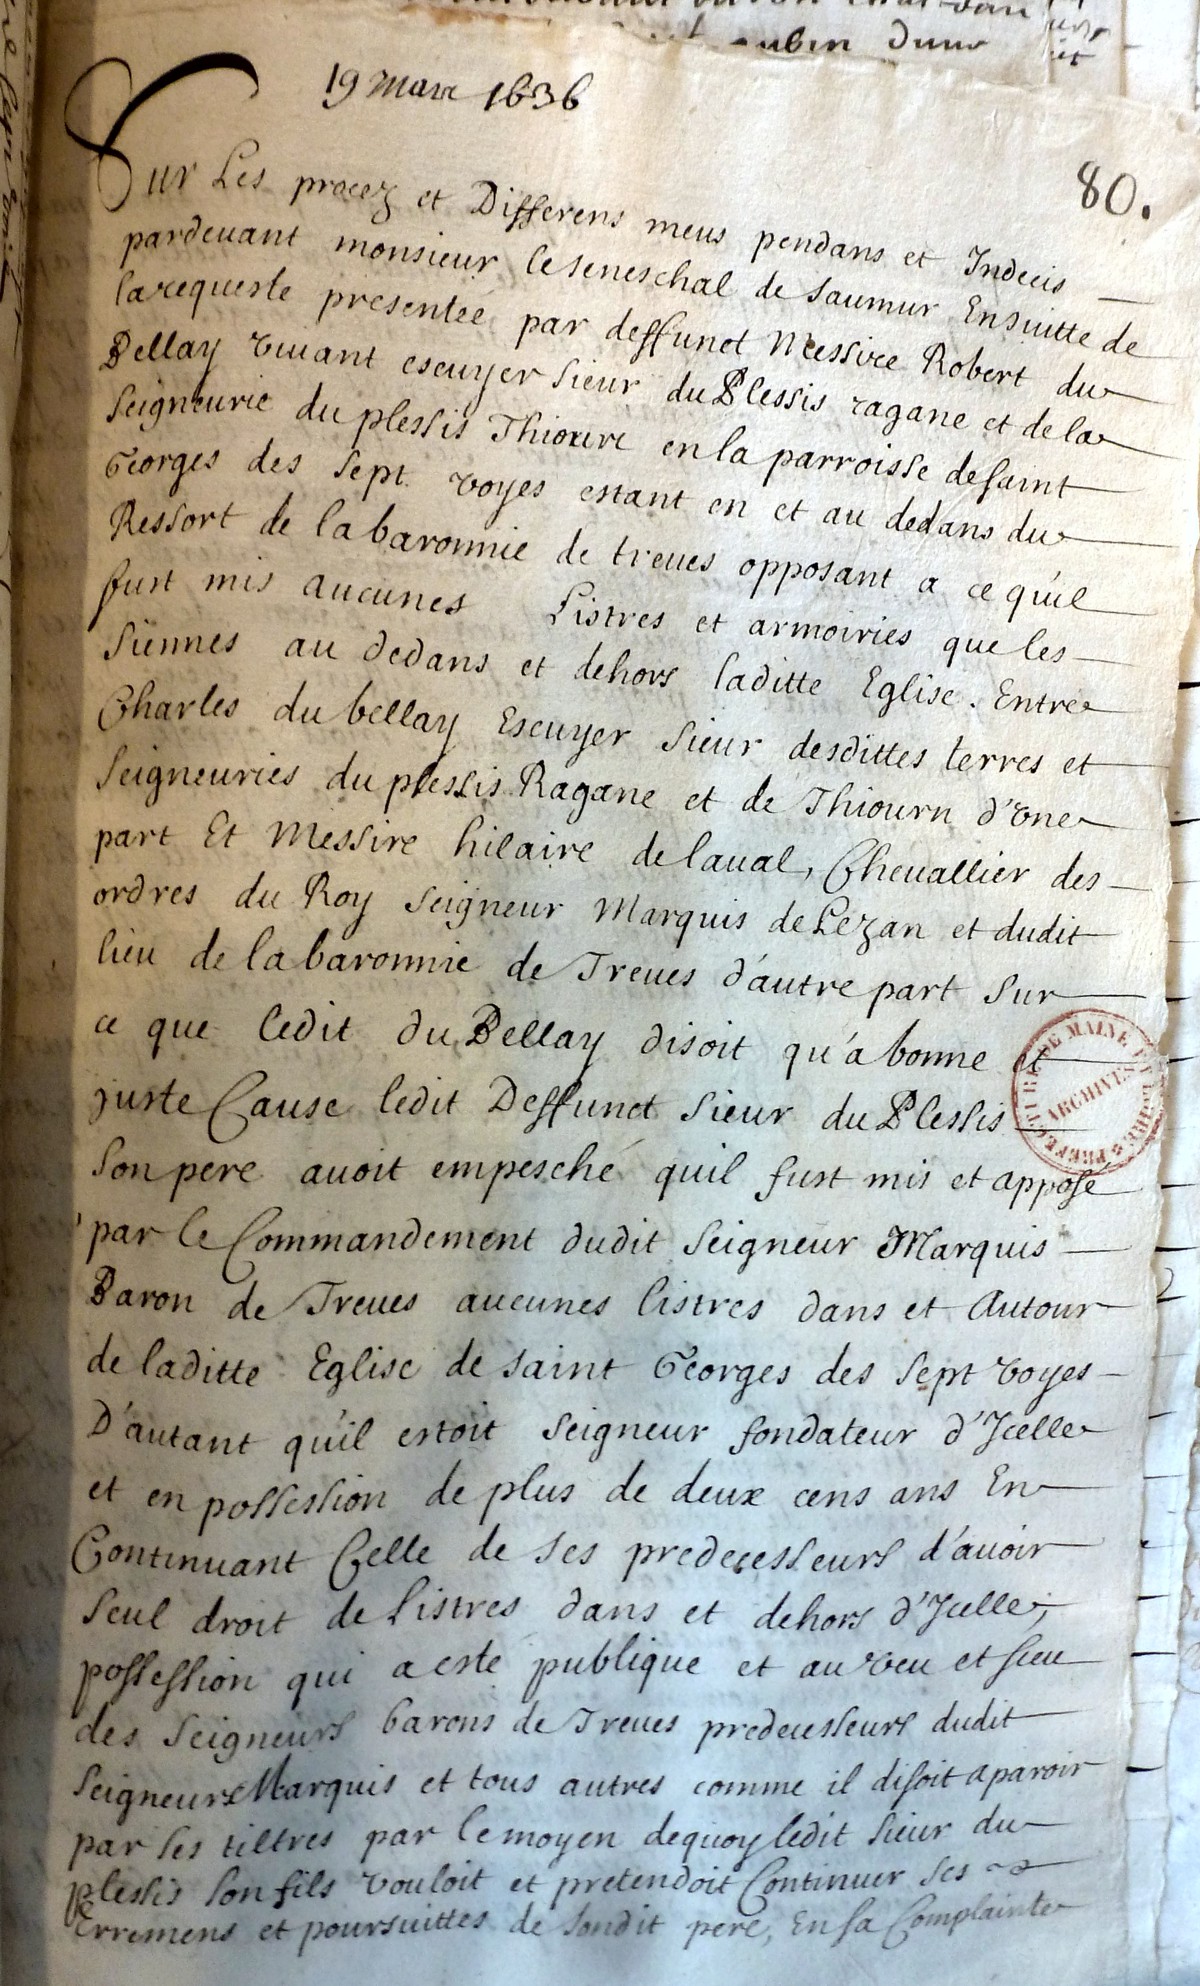 ubin duns
19 mars 1636
80.
Sur Les procez et Differens meus pendans et Indecis
pardeuant monsieur le seneschal de saumur Ensuitte de
la requeste presentée par deffunct Messire Robert du
Bellay viuant escuyer sieur du Plessis ragane et de la
seigneurie du plessis Thiourc en la parroisse de saint
Georges des sept voyes estant en et au dedans du
Ressort de la baronnie de treues opposant a ce quil
fust mis aucunes Listres et armoiries que les
siennes au dedans et dehors laditte Eglise. Entre
Charles du bellay Escuyer sieur desdittes terres et
seigneuries du plessis Ragane et de Thiourn d'vne
part Et Messire hilaire de laual, Cheuallier des
ordres du Roy seigneur Marquis de Lezan et dudit
lieu de la baronnie de Treues d'autre part sur
ce que ledit du Bellay disoit qu'a bonne et
juste Cause ledit Deffunct sieur du Plessis
son pere auoit empesché quil fust mis et apposé
par le Commandement dudit seigneur Marquis
Baron de Treues aucunes listres dans et Autour
de laditte Eglise de saint Georges des sept voyes
D'autant qu'il estoit seigneur fondateur d'Icelle
et en possession de plus de deux cens ans En
Continuant Celle de ses predecesseurs d'auoir
seul droit de Listres dans et dehors d'Icelle,
possession qui a esté publique et au veu et sceu
des seigneurs barons de Treues predecesseurs dudit
seigneur Marquis et tous autres comme il disoit aparoir
par ses tiltres par le moyen dequoy ledit sieur du
plessis son fils vouloit et pretendoit Continuer ses
Erremens et poursuittes de sondit pere, En sa Complainte
PREFECTURE DE MAINE ET LOIRE
ARCHIVES